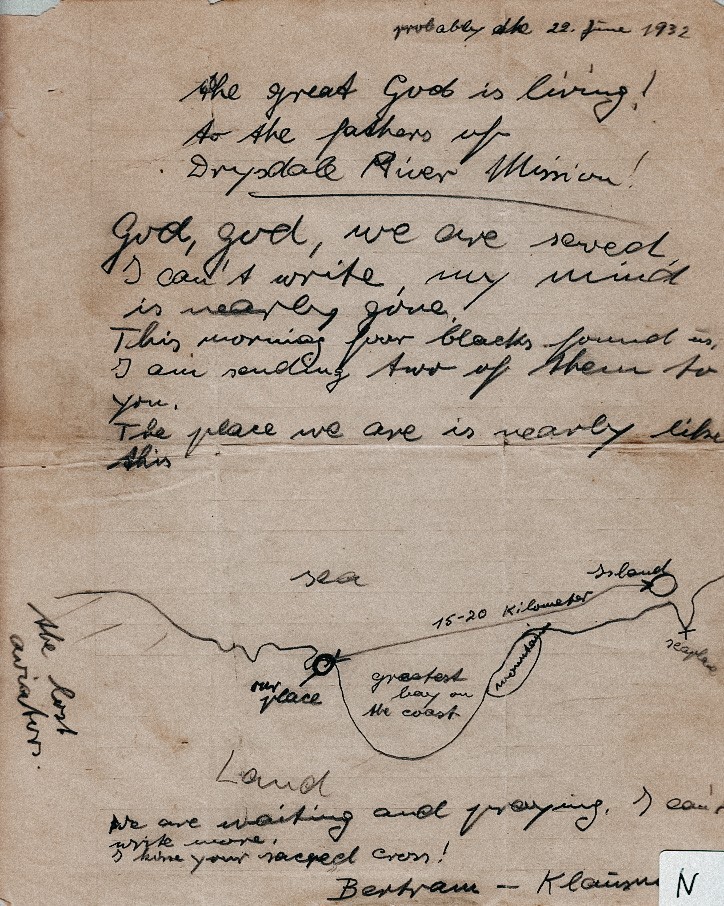 probably the 22. June 1932
the great God is living!
to the fathers of
Drysdale River Mission!
God, god, we are seved,
I can't write, my mind
is nearby gone.
This morning foor blacks found us,
I am sending two of them to
you.
The place we are is nearby like
this
sea
Island
15-20 Kilometer
mountain
seaplan
our
place
greatest
bay on
the coast
the lost
aviators.
Land
We are waiting and praying. I can't
write more.
I kiss your sacred cross!
Bertram – Klausm
N